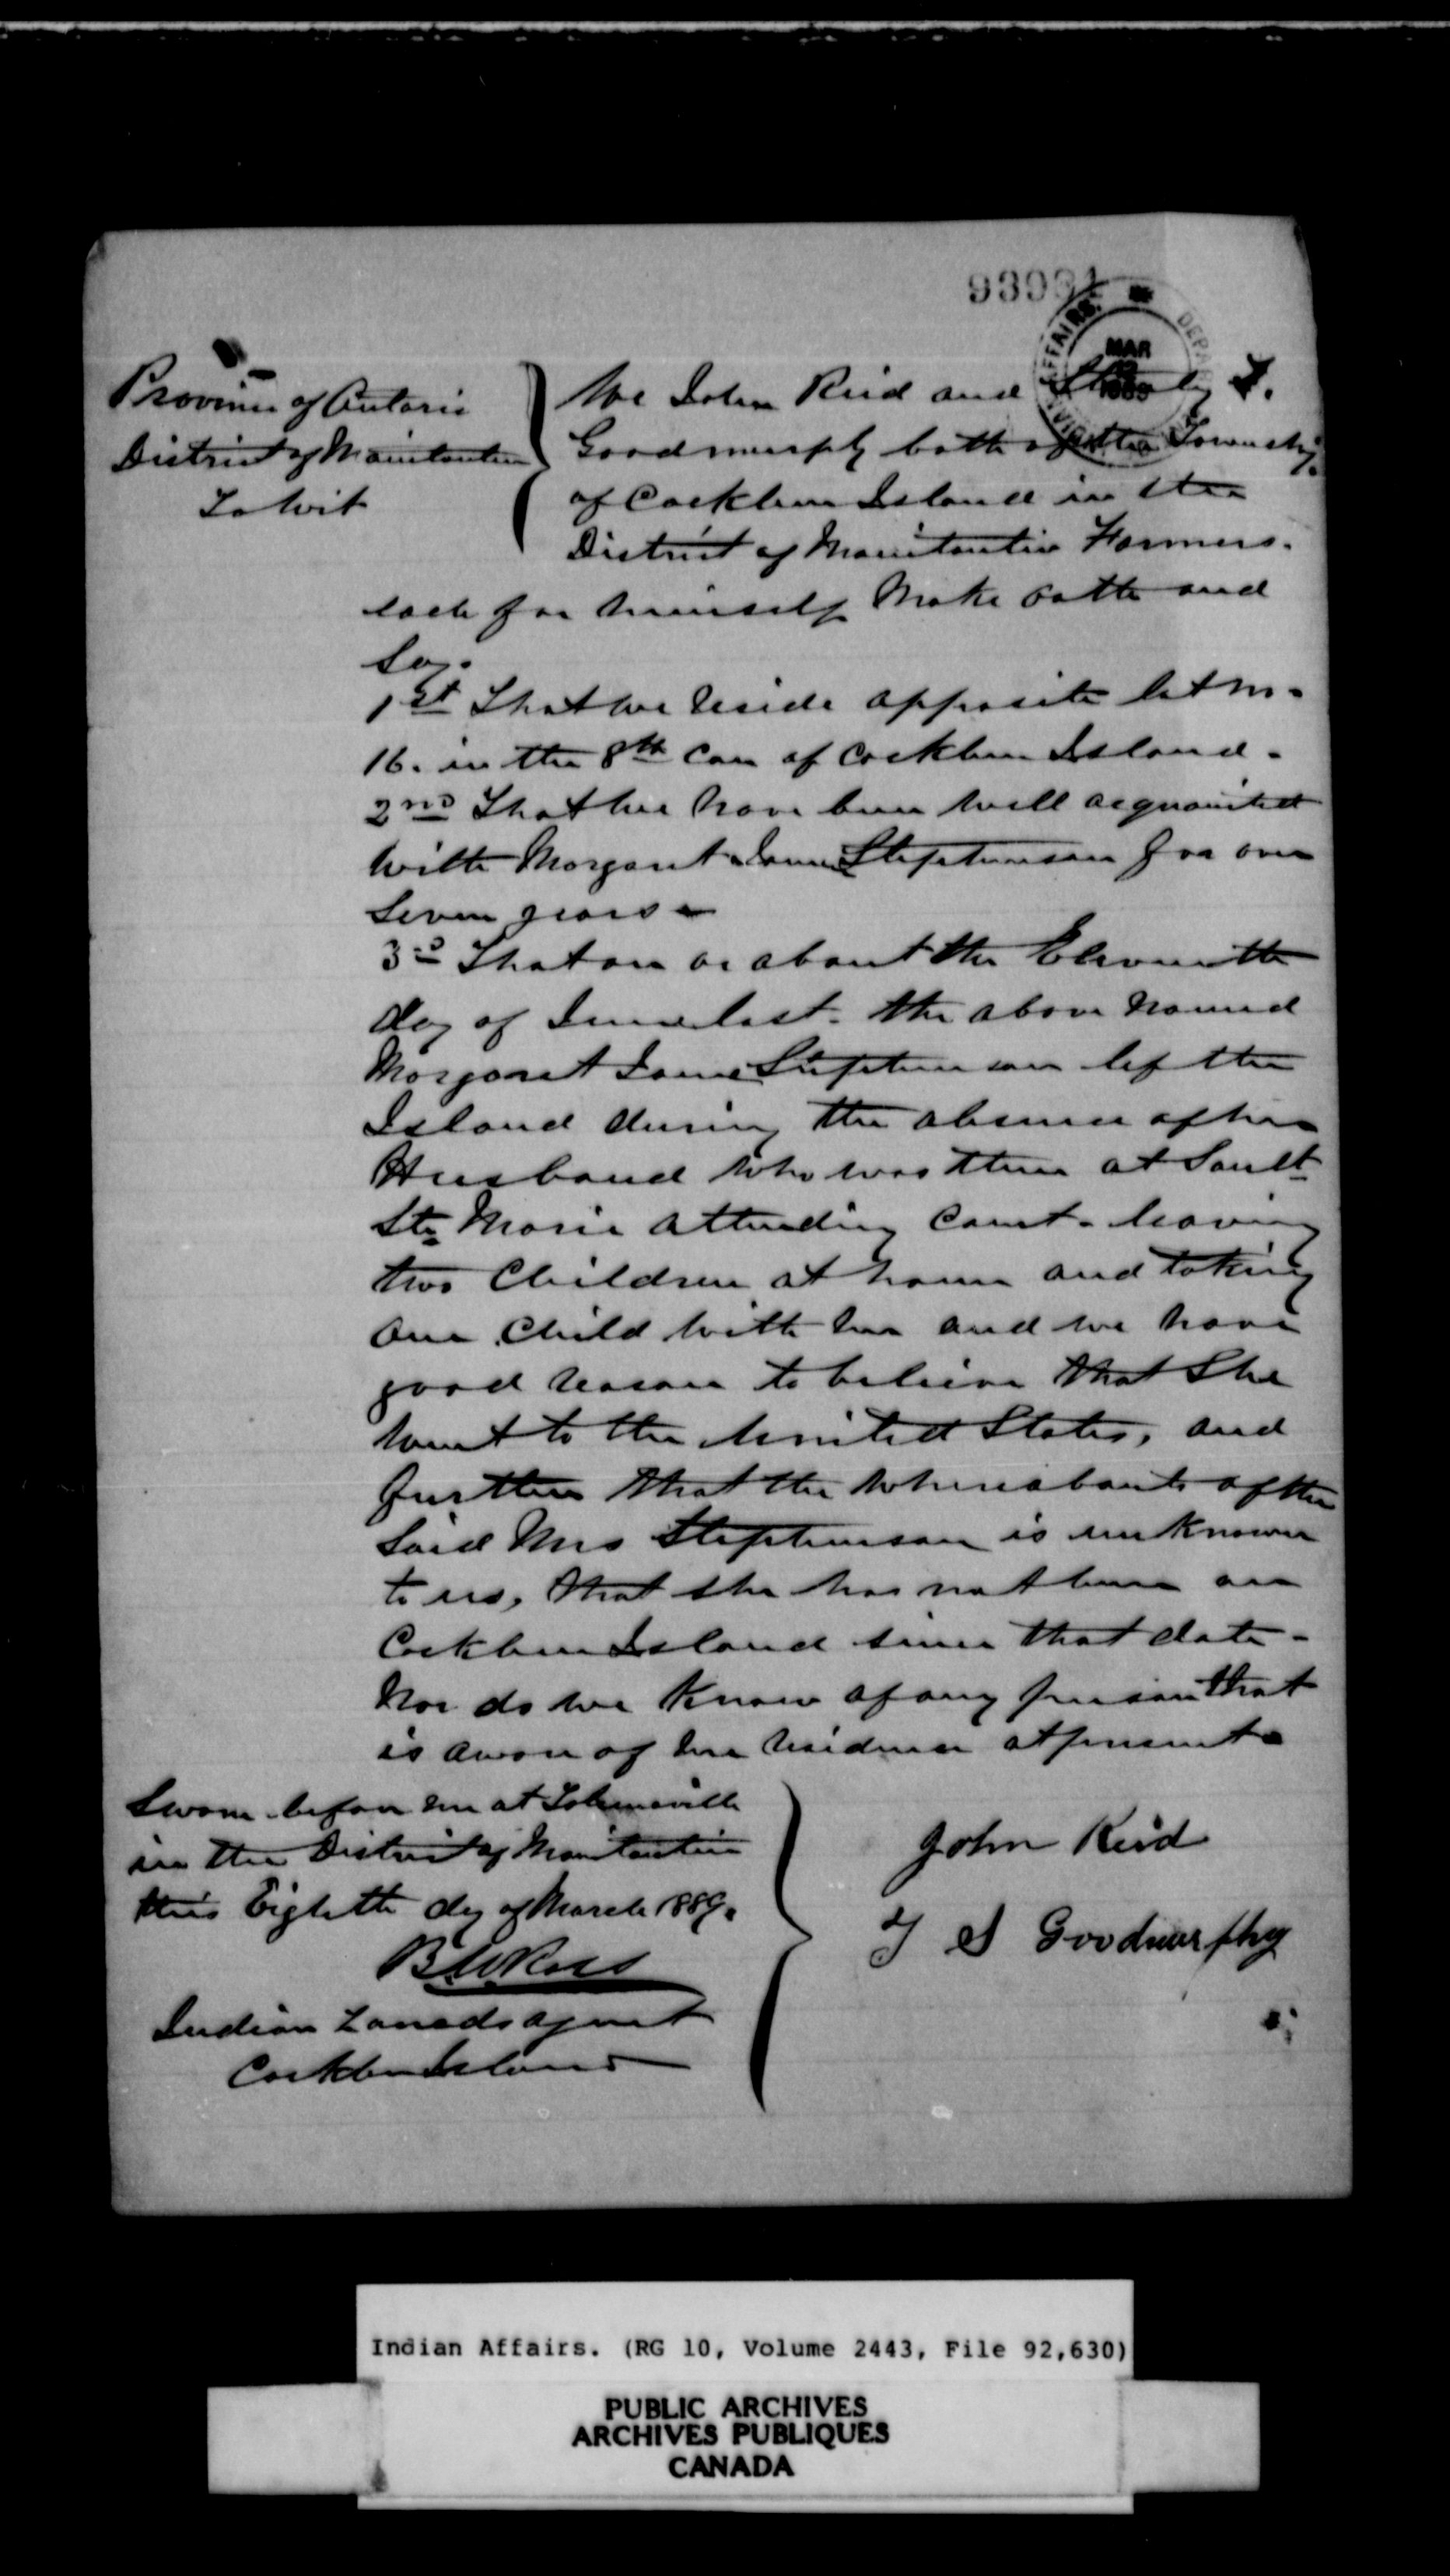 AFFAIRS. DEPA
MAR
Province of Ontario
District of Manitoulin
To Wit
We John Reid and Stanley T.
Goodmurphy both of the Township
of Cockburn Island in the
District of Manitoulin Farmers.
each for himself Make oath and
Say.
1st That we reside opposite lot no.
16. in the 8th Con of Cockburn Island.
2nd That we have been well acquainted
with Margaret Jane Stephenson for over
Seven years
3d That on or about the Eleventh
day of June last. the above named
Margaret Jane Stephenson lef the
Island during the absence of her
Husband who was then at Sault
Ste Marie attending Court. leaving
two Children at home and taking
one Child with her and we have
good reason to believe that She
went to the United States, and
further that the whereabouts of the
Said Mrs Stephenson is unknown
to us, that she has not been on
Cockburn Island since that date.
Nor do we Know of any person that
is aware of her residence at present
Sworn before me at Tolsmaville
in the District of Manitoulin
this Eighth day of March 1889.
B W Ross
Indian Lands agent
Cockburn Island
John Reid
T S Goodmurphy
Indian Affairs. (RG 10, Volume 2443, File 92,630)
PUBLIC ARCHIVES
ARCHIVES PUBLIQUES
CANADA